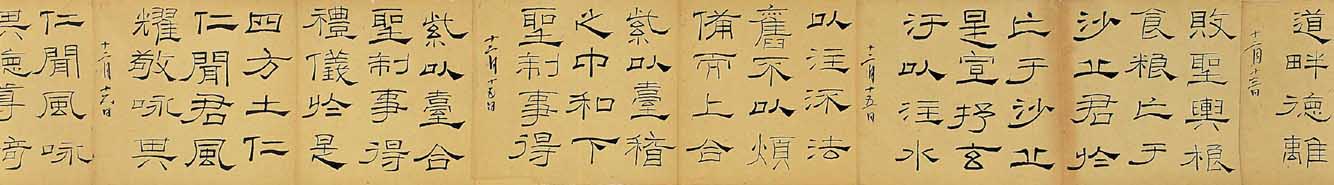 道畔德離
十二月
敗聖輿粮
食粮亡于
沙丘君於
亡于沙丘
是宣抒玄
汙以注水
十二月十五日
以注深法
舊不以煩
備而上合
紫以臺稽
之中和下
聖制事得
十二月
紫以臺合
聖制事得
禮儀於是
四方土仁
仁聞君風
耀敬咏其
十二月十六日
仁聞風咏
其德尊奇